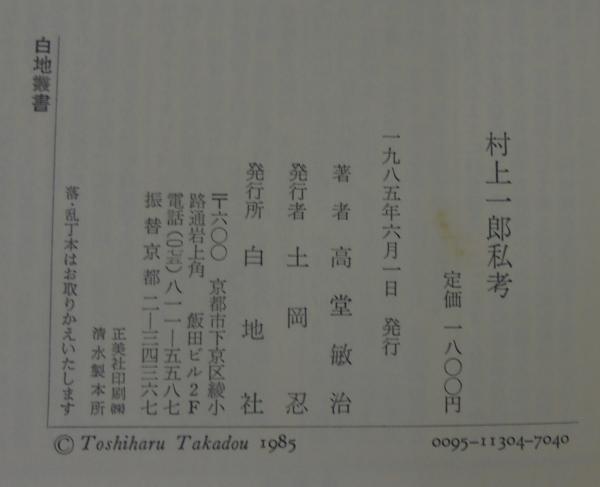 村上一郎私考
定価 一八〇〇円
一九八五年六月一日 発行
著者 高堂敏治
発行者 土岡忍
発行所 白地社
〒六〇〇 京都市下京区綾小
路通岩上角 飯田ビル2F
電話(〇七五)八一一―五五八七
振替京都 二―三四三六七
正美社印刷㈱
清水製本所
落・乱丁本はお取りかえいたします
白地叢書
© Toshiharu Takadou 1985
0095-11304-7040